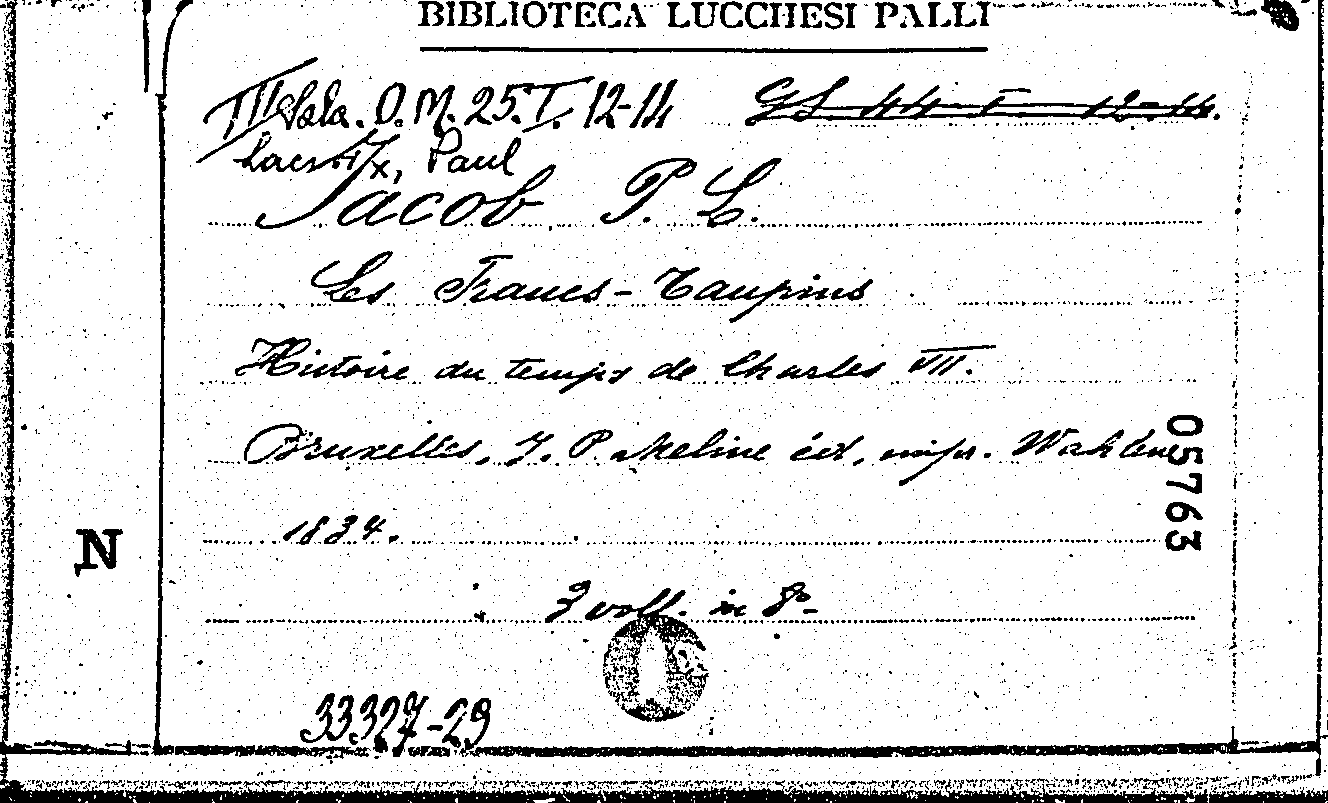 BIBLIOTECA LUCCHESI PALLI
III Sala. O.M. 25. I. 12-14 GS. 44 I 12-14.
Lacroix, Paul
Jacob P. L.
Les Francs-Taupins
Histoire du temps de Charles VII.
Bruxelles, J. P. Meline éd, impr. Wahlen
1834.
3 voll. in 8º
33327-29
05763
N